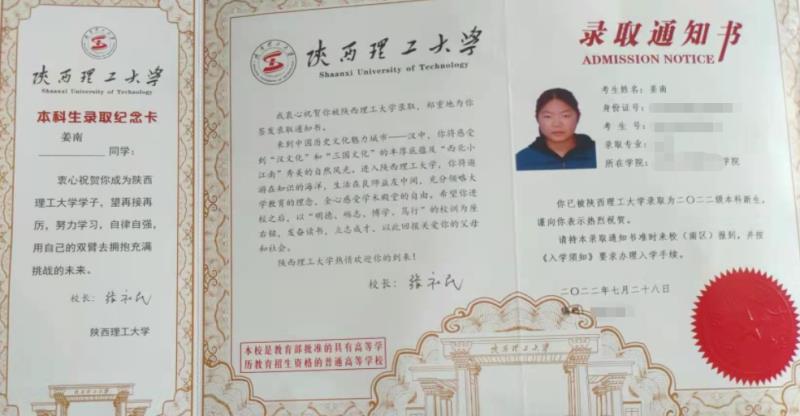 陕西理工大学
Shaanxi University of Technology
本科生录取纪念卡
姜南
同学:
衷心祝贺你成为陕西
理工大学学子,望再接再
厉,努力学习,自律自强,
用自己的双臂去拥抱充满
挑战的未来。
校长:
陕西理工大学
陕西理工大学
Shaanxi University of Technology
我衷心祝贺你被陕西理工大学录取,郑重地为你
签发录取通知书。
来到中国历史文化魅力城市——汉中,你将感受
到“汉文化”和“三国文化”的丰厚底蕴及“西北小
江南”秀美的自然风光。进入陕西理工大学,你将遨
游在知识的海洋,生活在良师益友中间,充分领略大
学教育的理念,全心感受学术殿堂的自由。希望你进
校之后,以“明德、砺志、博学、笃行”的校训为座
右铭,发奋读书,立志成才,以此回报关爱你的父母
和社会。
陕西理工大学热情欢迎你的到来!
校长:
本校是教育部批准的具有高等学
历教育招生资格的普通高等学校
录取通知书
ADMISSION NOTICE
考生姓名:姜南
身份证号:
考 生 号:
录取专业:
所在学院: 学院
你已被陕西理工大学录取为二〇二二级本科新生,
谨向你表示热烈祝贺。
请持本录取通知书准时来校(南区)报到,并按
《入学须知》要求办理入学手续。
二〇二二年七月二十八日
编号
陕西理工大学